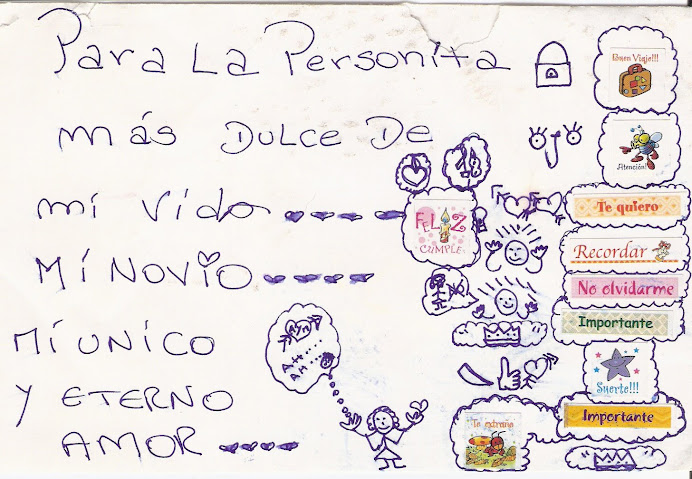 Para La Personita
más DULCE DE
mi vida
MÍ NOVIO
MÍ UNICO
Y ETERNO
AMOR
Buen Viaje!!!
Atención!
Te quiero
FELIZ
CUMPLE
Recordar
No olvidarme
Importante
Suerte!!!
Importante
Te extraño